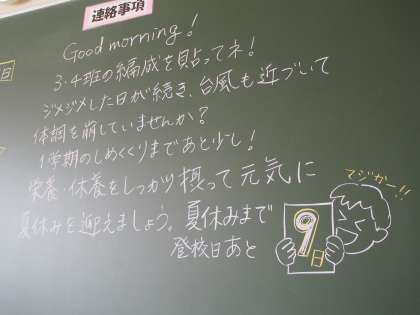 連絡事項
Good morning!
3・4班の編成を貼ってネ!
ジメジメした日が続き、台風も近づいて
体調を崩していませんか?
1学期のしめくくりまであと少し!
栄養・休養をしっかり摂って元気に
夏休みを迎えましょう。夏休みまで
登校日あと
9日
マジかー!!
日